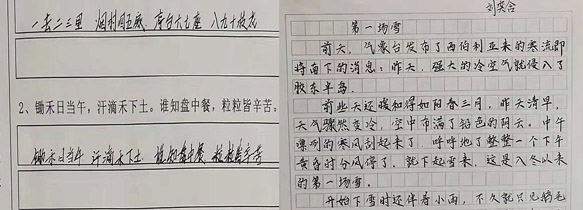 一去二三里 烟村四五家 亭台六七座 八九十枝花
2、锄禾日当午，汗滴禾下土。谁知盘中餐，粒粒皆辛苦。
锄禾日当午 汗滴禾下土 谁知盘中餐 粒粒皆辛苦
第一场雪
前天，气象台发布了西伯利亚来的寒流即
将南下的消息；昨天，强大的冷空气就侵入了
胶东半岛。
前些天还暖和得如阳春三月，昨天清早，
天气骤然变冷，空中布满了铅色的阴云。中午
凛冽的寒风刮起来了，呼呼地刮了整整一个下午
黄昏时分风停了，就下起雪来，这是入冬以来
的第一场雪。
开始下雪时还伴着小雨，不久就只见鹅毛